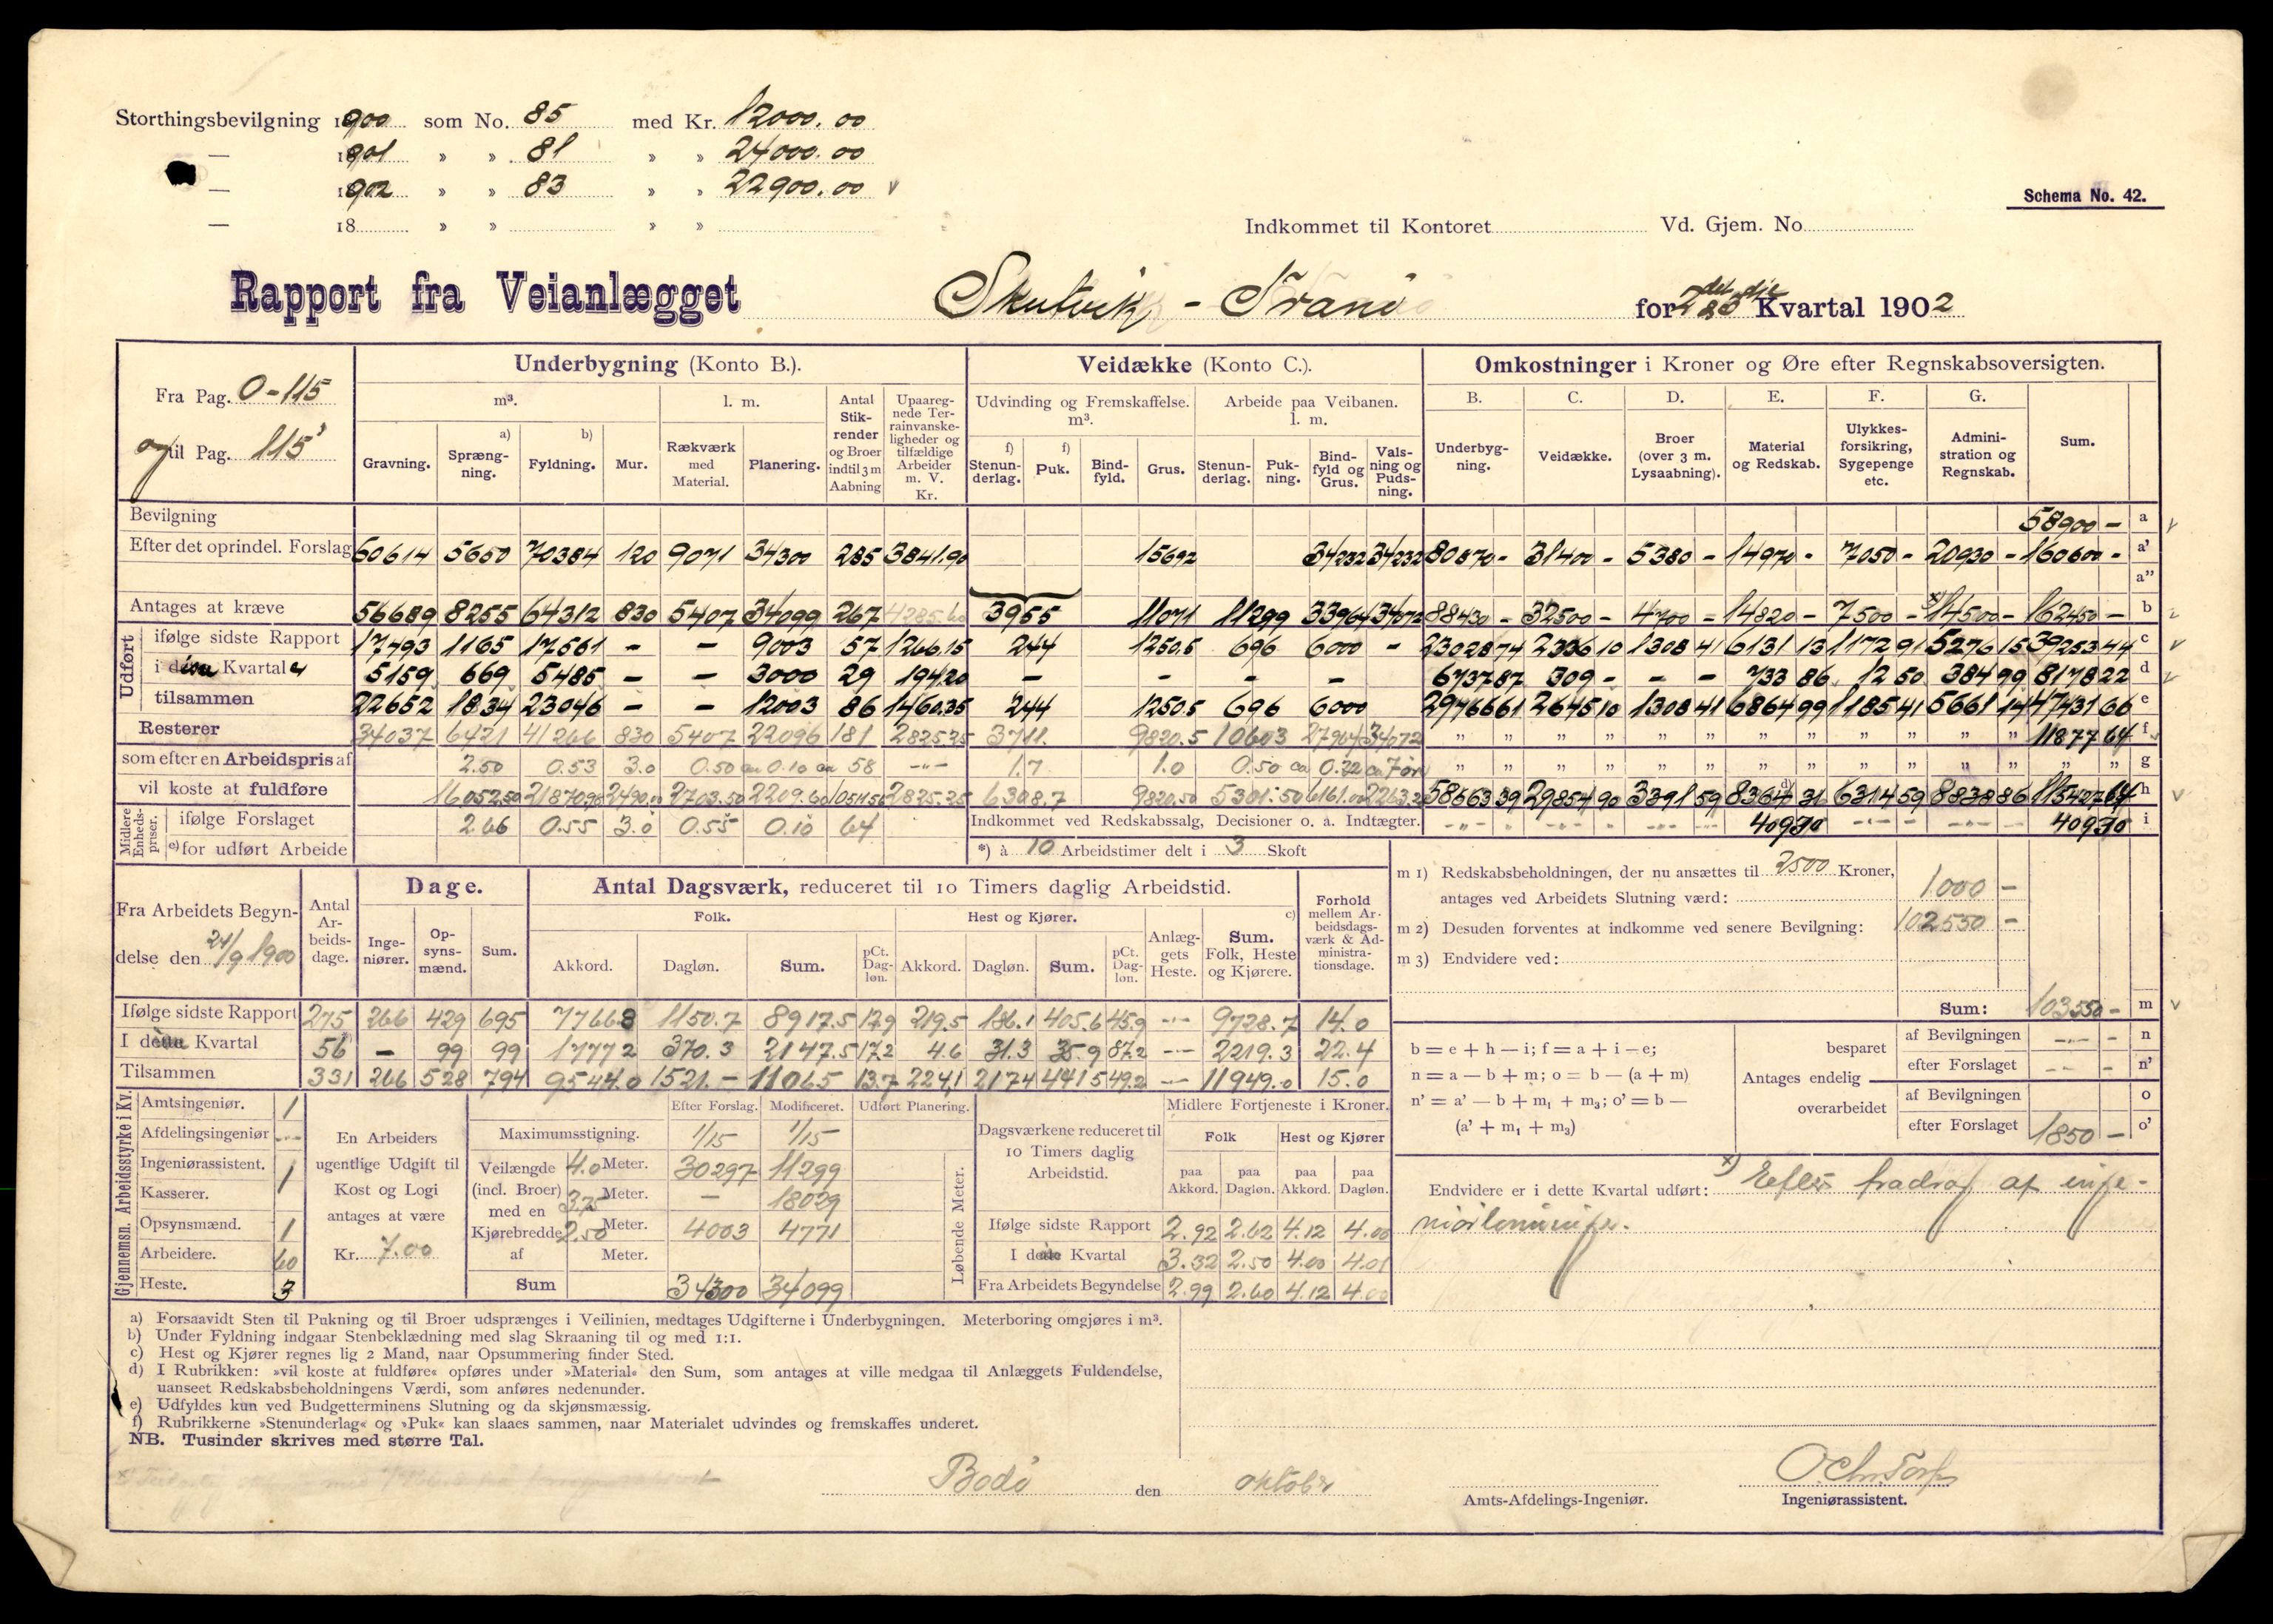 Storthingsbevilgning 1900 som No. 85 med Kr. 12000.00
— 1901 » » 81 » » 24000.00
— 1902 » » 83 » » 22900.00
— 18 » » » »
Schema No. 42.
Indkommet til Kontoret Vd. Gjem. No
Rapport fra Veianlægget Skutvik - Tranö for 2det & 3die Kvartal 1902
Fra Pag. 0 - 115
og til Pag. 115
Underbygning (Konto B.). Veidække (Konto C.). Omkostninger i Kroner og Øre efter Regnskabsoversigten.
m³. l. m. Antal Stikrender og Broer indtil 3 m Aabning
Upaaregnede Terrainvanskeligheder og tilfældige Arbeider m. V. Kr.
Udvinding og Fremskaffelse. m³. Arbeide paa Veibanen. l. m.
B. C. D. E. F. G. Sum.
Gravning. a) Sprængning. b) Fyldning. Mur. Rækværk med Material. Planering.
f) Stenunderlag. f) Puk. Bindfyld. Grus. Stenunderlag. Pukning. Bindfyld og Grus. Valsning og Pudsning.
Underbygning. Veidække. Broer (over 3 m. Lysaabning). Material og Redskab. Ulykkesforsikring, Sygepenge etc. Administration og Regnskab.
Bevilgning 58900 - a
Efter det oprindel. Forslag 60614 5650 70384 120 9071 34300 285 3841.90 15692 34232 34232 80870 - 31400 - 5380 - 14970 - 7050 - 20930 - 160600 - a'
a''
Antages at kræve 56689 8255 64312 830 5407 34099 267 4285.60 3955 11071 11299 33964 34072 88430 - 32500 - 4700 - 14820 - 7500 - 14500 - 162450 - b
Udført
ifølge sidste Rapport 17493 1165 17561 - - 9003 57 1266.15 244 1250.5 696 6000 - 23028 74 2336 10 1308 41 6131 13 1172 91 5276 15 39253 44 c
i disse Kvartaler 5159 669 5485 - - 3000 29 194.20 - - - - 6737 87 309 - - - 733 86 12 50 384 99 8178 22 d
tilsammen 22652 1834 23046 - - 12003 86 1460.35 244 1250.5 696 6000 29766 61 2645 10 1308 41 6864 99 1185 41 5661 14 47431 66 e
Resterer 34037 6421 41266 830 5407 22096 181 2825.25 3711. 9820.5 10603 27964 34072 11877 64 f
som efter en Arbeidspris af 2.50 0.53 3.0 0.50 ca 0.10 ca 58 1.7 1.0 0.50 ca 0.22 ca 7 øre g
vil koste at fuldføre 16052.50 21870.98 2490.00 2703.50 2209.60 2825.25 6308.7 9820.50 5301.50 6161.00 58663 39 29854 90 3391 59 d) 8364 31 6314 59 8838 86 115427 64 h
Midlere Enhedspriser.
ifølge Forslaget 2.66 0.55 3.0 0.55 0.10 64 Indkommet ved Redskabssalg, Decisioner o. a. Indtægter. 409 30 409 30 i
e) for udført Arbeide
*) à 10 Arbeidstimer delt i 3 Skoft
Fra Arbeidets Begyndelse den 24/9 1900
Antal Arbeidsdage.
Dage.
Ingeniører. Opsynsmænd. Sum.
Antal Dagsværk, reduceret til 10 Timers daglig Arbeidstid.
Folk. Hest og Kjører.
Akkord. Dagløn. Sum. pCt. Dagløn. Akkord. Dagløn. Sum. pCt. Dagløn. Anlæggets Heste. c) Sum. Folk, Heste og Kjørere.
Forhold mellem Arbeidsdagsværk & Administrationsdage.
Ifølge sidste Rapport 275 266 429 695 7766.8 1150.7 8917.5 12.9 219.5 186.1 405.6 45.9 9728.7 14.0
I dette Kvartal 56 - 99 99 1777.2 370.3 2147.5 17.2 4.6 31.3 35.9 87.2 2219.3 22.4
Tilsammen 331 266 528 794 9544.0 1521.- 11065 13.7 224.1 217.4 441.5 49.2 11949.0 15.0
m 1) Redskabsbeholdningen, der nu ansættes til 2500 Kroner, antages ved Arbeidets Slutning værd: 1000 -
m 2) Desuden forventes at indkomme ved senere Bevilgning: 102550 -
m 3) Endvidere ved:
Sum: 103550 - m
b = e + h — i; f = a + i — e;
n = a — b + m; o = b — (a + m)
n' = a' — b + m₁ + m₃; o' = b —
(a' + m₁ + m₃)
Antages endelig
besparet af Bevilgningen n
efter Forslaget n'
overarbeidet af Bevilgningen o
efter Forslaget 1850 - o'
Gjennemsn. Arbeidsstyrke i Kv.
Amtsingeniør. 1
Afdelingsingeniør
Ingeniørassistent. 1
Kasserer.
Opsynsmænd. 1
Arbeidere. 60
Heste. 3
En Arbeiders ugentlige Udgift til Kost og Logi antages at være
Kr. 7.00
Efter Forslag. Modificeret. Udført Planering.
Maximumsstigning. 1/15 1/15
Veilængde (incl. Broer) med en Kjørebredde af
4.0 Meter. 30297 11299
3.75 Meter. — 18029
2.50 Meter. 4003 4771
Meter.
Sum 34300 34099
Løbende Meter.
Dagsværkene reduceret til 10 Timers daglig Arbeidstid.
Midlere Fortjeneste i Kroner.
Folk Hest og Kjører
paa Akkord. paa Dagløn. paa Akkord. paa Dagløn.
Ifølge sidste Rapport 2.92 2.62 4.12 4.00
I dette Kvartal 3.32 2.50 4.00 4.01
Fra Arbeidets Begyndelse 2.99 2.60 4.12 4.00
Endvidere er i dette Kvartal udført: x) Efter fradrag af inge-
niørlønninger.
a) Forsaavidt Sten til Pukning og til Broer udsprænges i Veilinien, medtages Udgifterne i Underbygningen. Meterboring omgjøres i m³.
b) Under Fyldning indgaar Stenbeklædning med slag Skraaning til og med 1:1.
c) Hest og Kjører regnes lig 2 Mand, naar Opsummering finder Sted.
d) I Rubrikken: »vil koste at fuldføre« opføres under »Material« den Sum, som antages at ville medgaa til Anlæggets Fuldendelse,
uanseet Redskabsbeholdningens Værdi, som anføres nedenunder.
e) Udfyldes kun ved Budgetterminens Slutning og da skjønsmæssig.
f) Rubrikkerne »Stenunderlag« og »Puk« kan slaaes sammen, naar Materialet udvindes og fremskaffes underet.
NB. Tusinder skrives med større Tal.
Bodö den oktober
Amts-Afdelings-Ingeniør.
O. Chr. Torp
Ingeniørassistent.